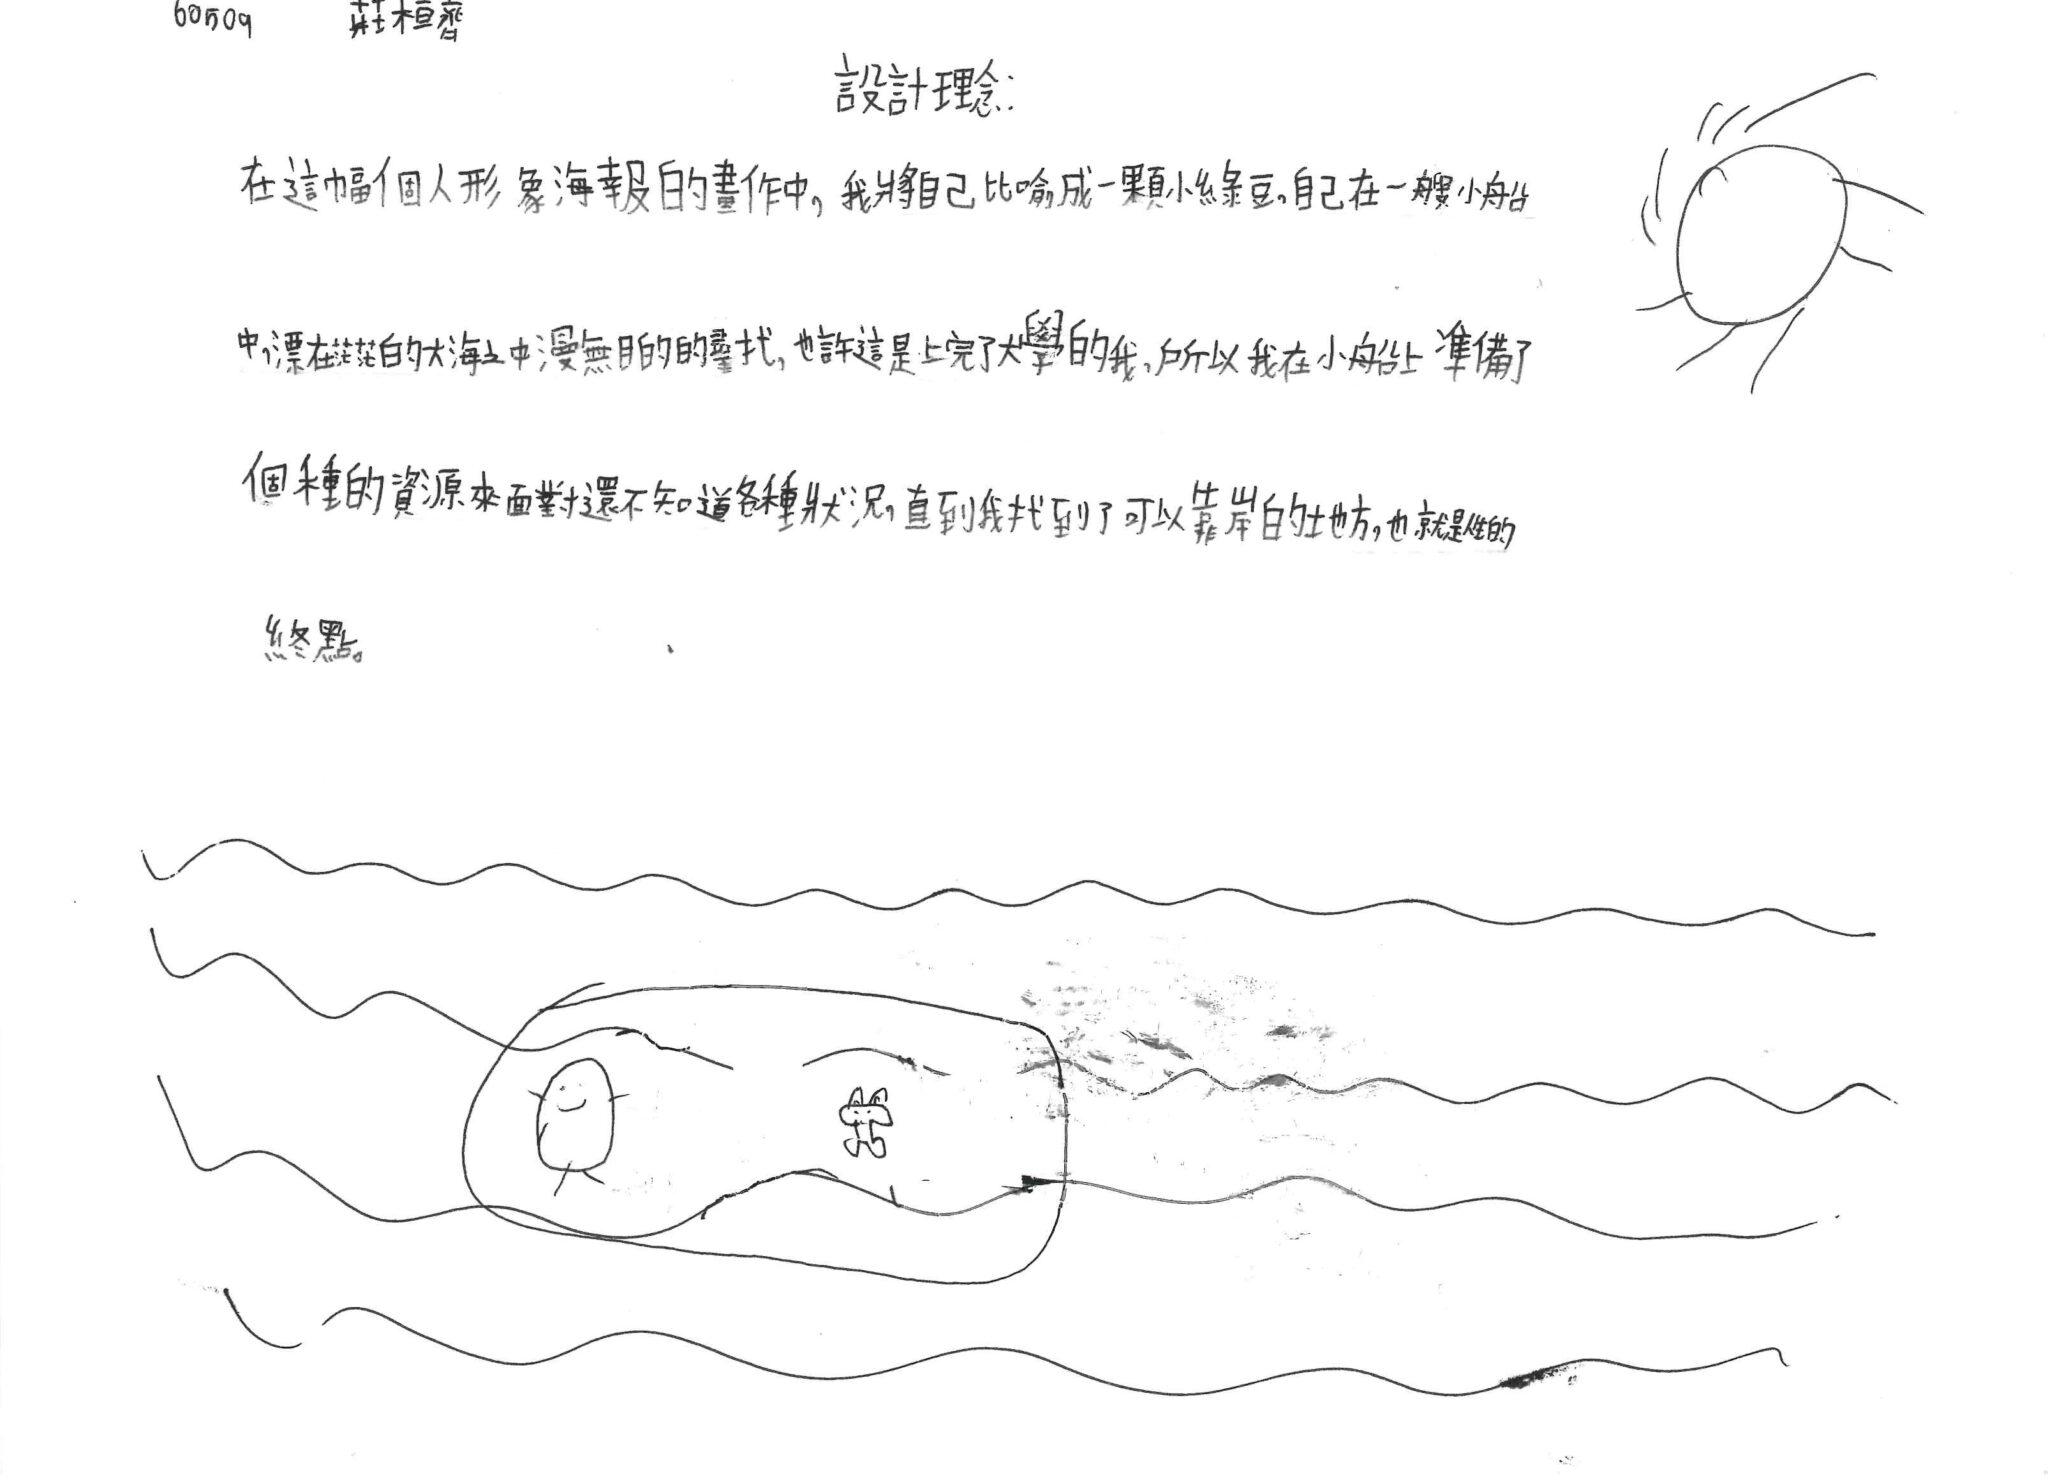 60509 莊桓齊
設計理念:
在這幅個人形象海報的畫作中,我將自己比喻成一顆小綠豆。自己在一艘小船
中,漂在茫茫的大海之中漫無目的的尋找,也許這是上完了大學的我,所以我在小船上準備了
個種的資源來面對還不知道各種狀況,直到我找到了可以靠岸的地方,也就是性的
終點。